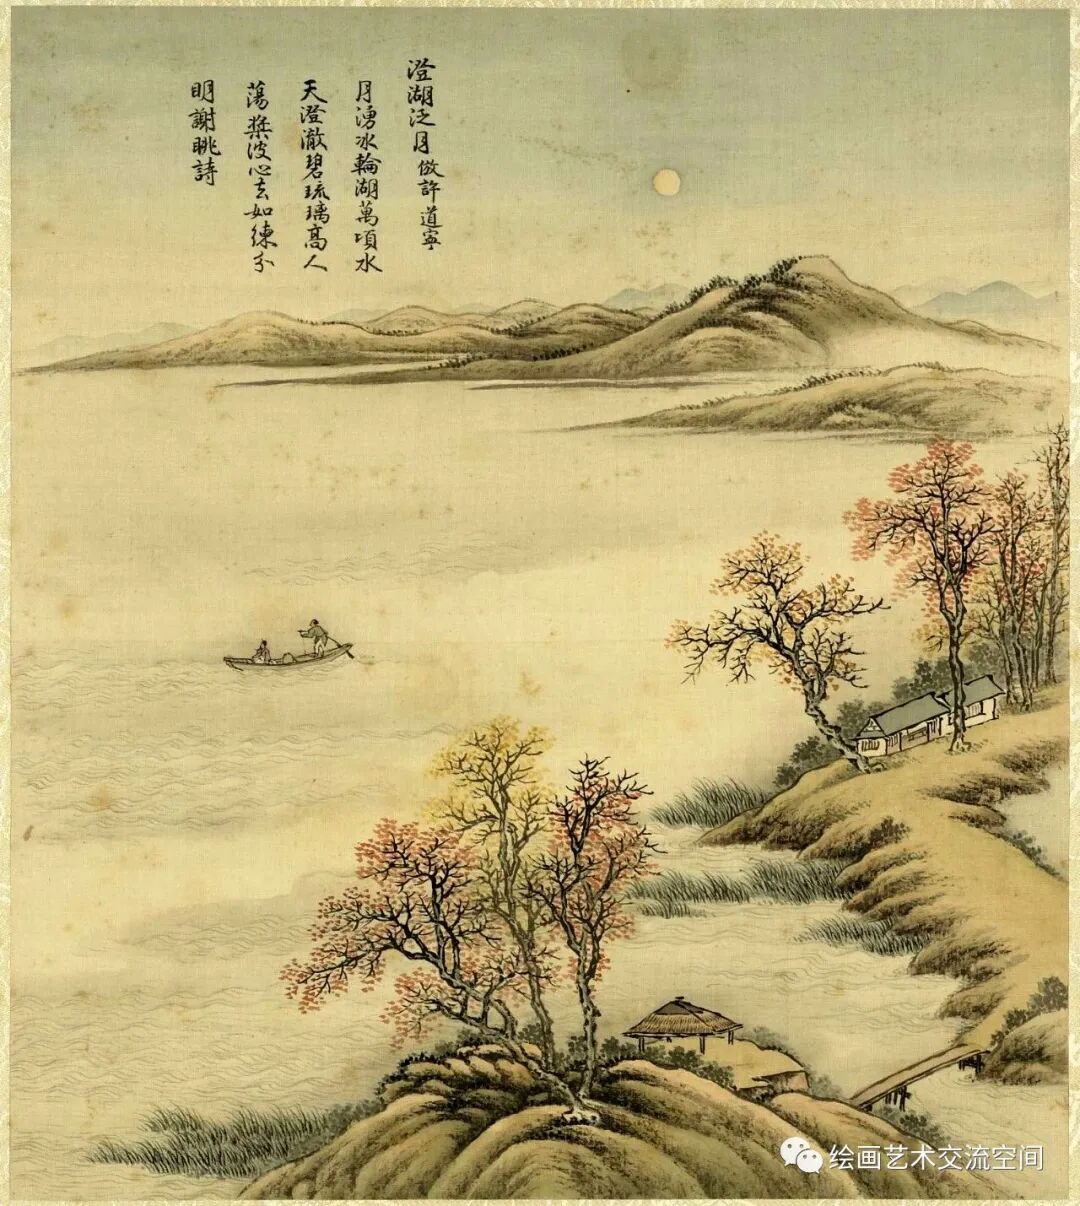 澄湖泛月 倣許道寧
月湧冰輪湖萬頃水
天澄澈碧琉璃高人
蕩槳波心去如練分
明謝眺詩
绘画艺术交流空间